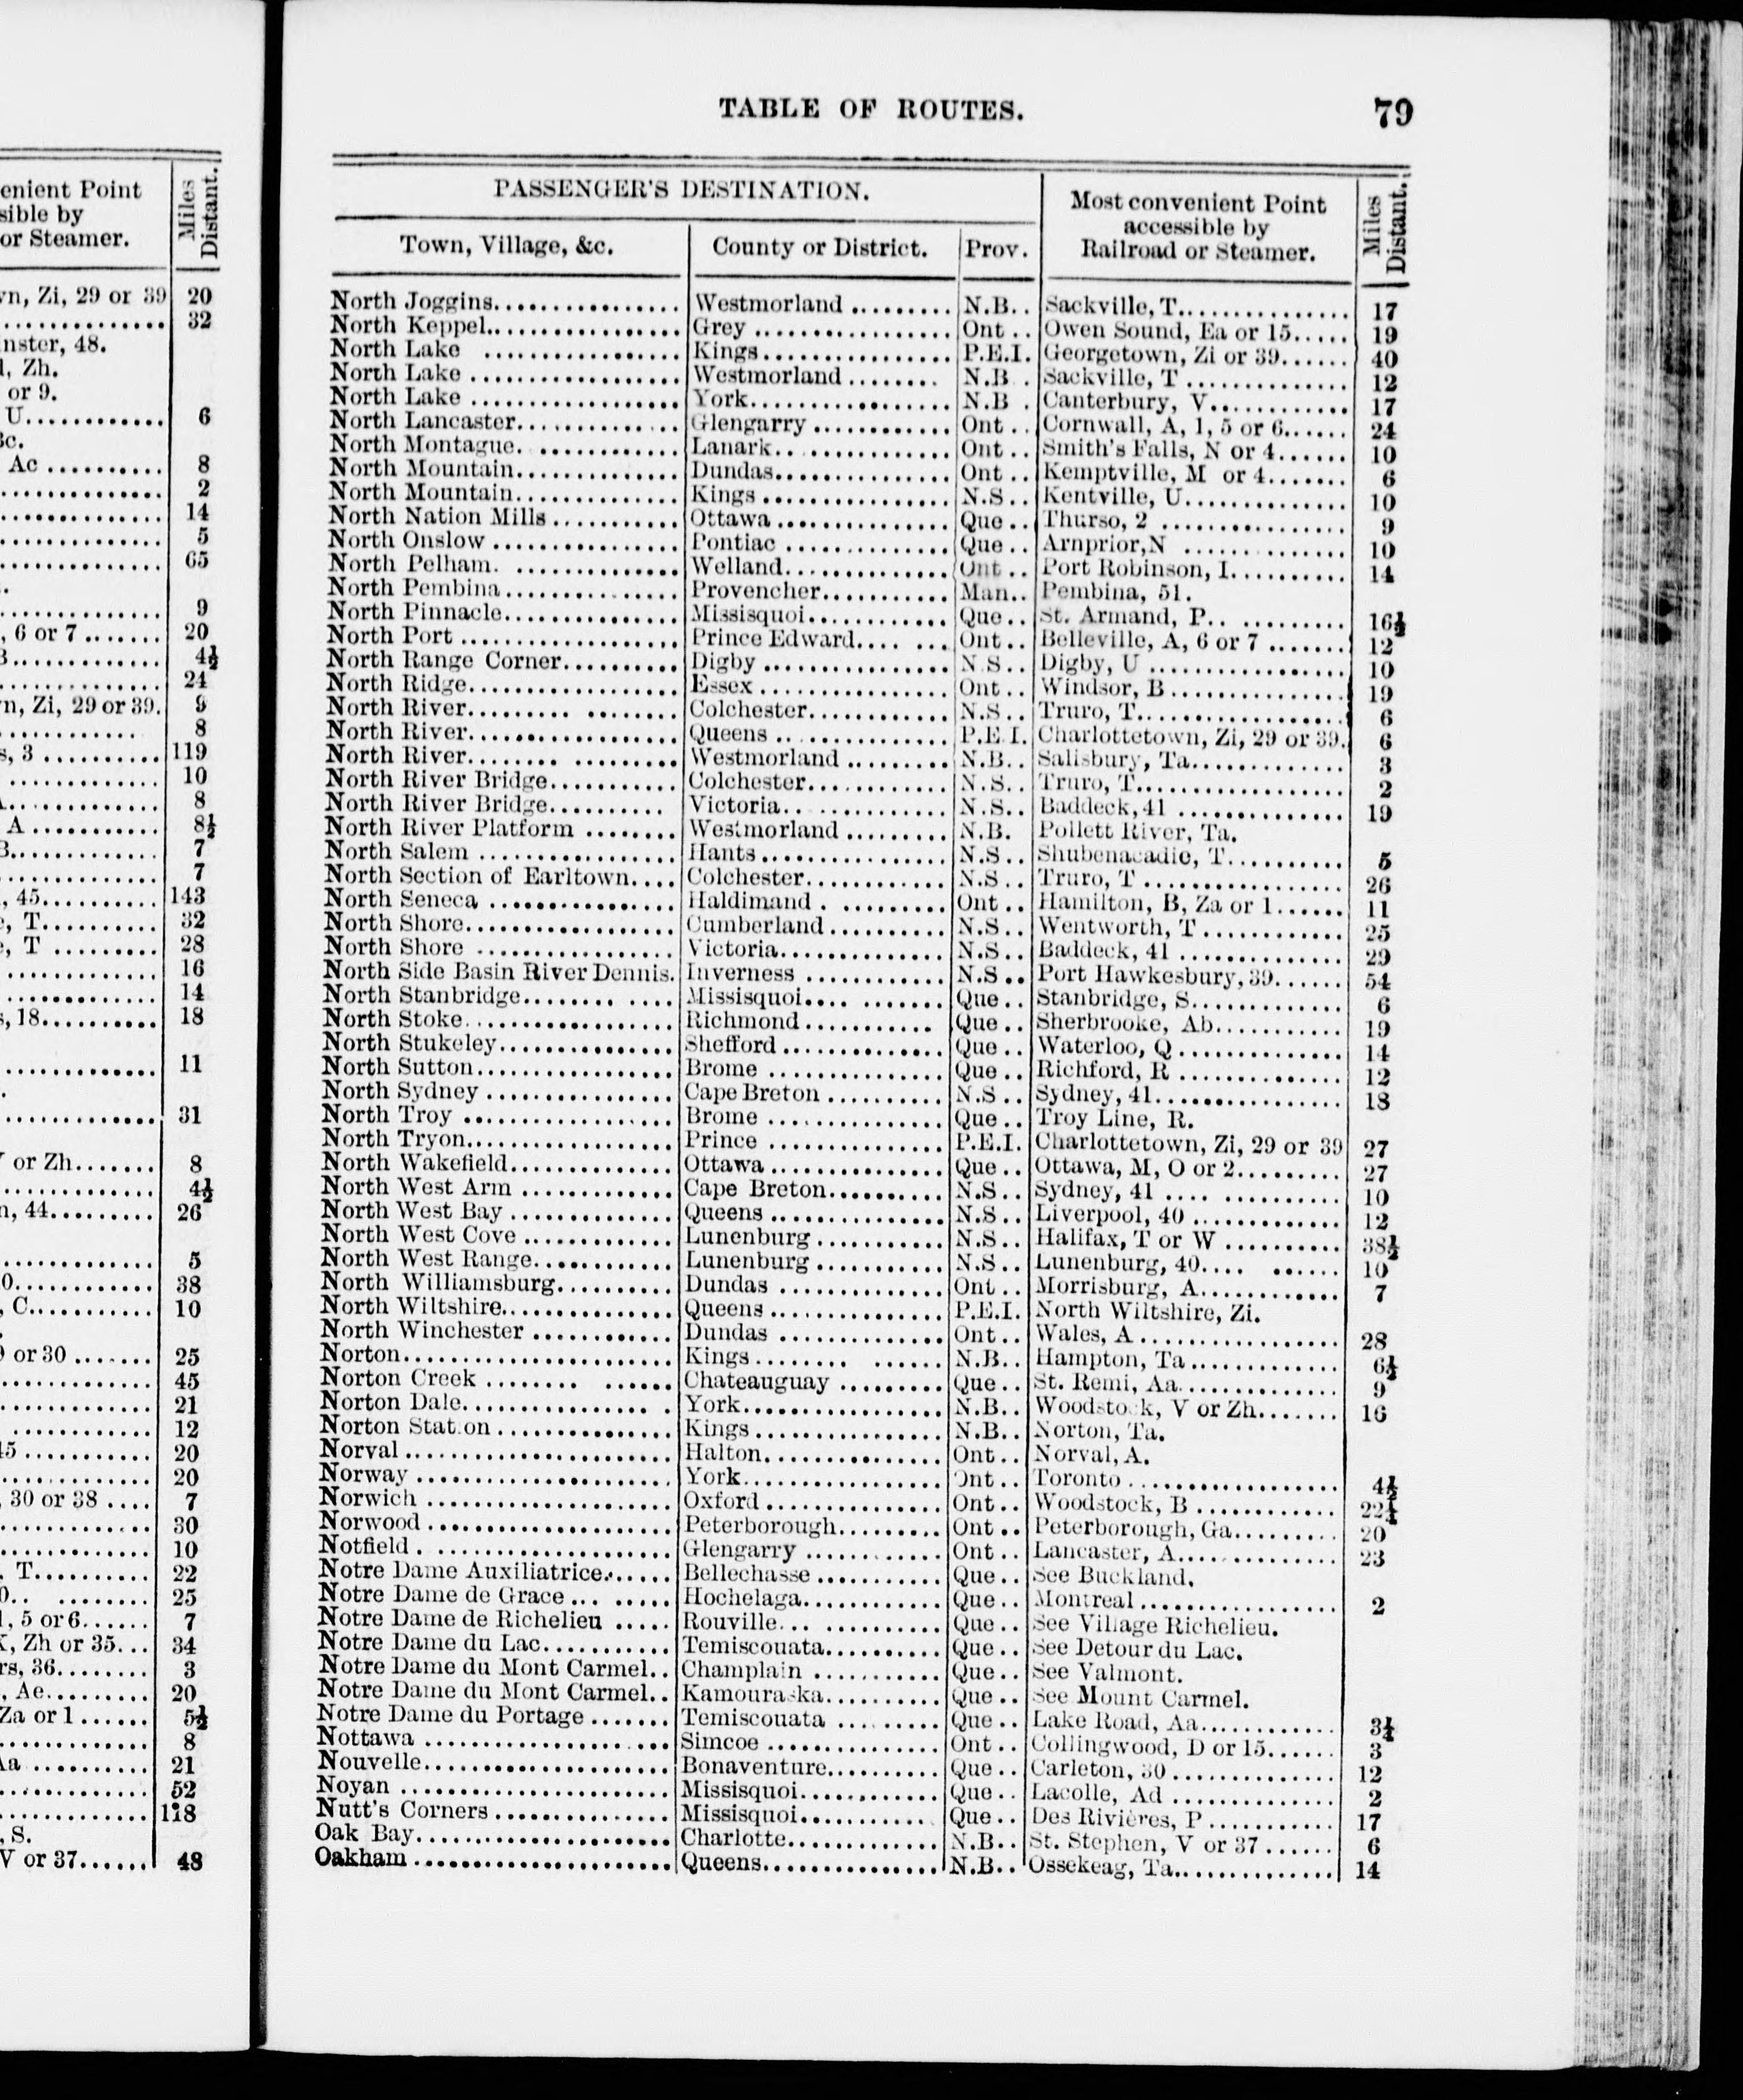 enient Point
sible by
or Steamer.
Miles
Distant.
vn, Zi, 29 or 39 20
32
nster, 48.
l, Zh.
or 9.
U............ 6
3c.
Ac .......... 8
2
14
5
65
9
, 6 or 7 ....... 20
3............. 4½
24
n, Zi, 29 or 39. 9
8
s, 3 .......... 119
10
8
A ............ 8½
3............. 7
7
, 45.......... 143
e, T.......... 32
e, T .......... 28
16
14
s, 18........... 18
11
31
or Zh....... 8
4½
n, 44......... 26
5
0............. 38
, C........... 10
or 30 ....... 25
45
21
12
45 ........... 20
20
, 30 or 38 .... 7
30
10
T.......... 22
25
, 5 or 6...... 7
, Zh or 35... 34
rs, 36........ 3
, Ae......... 20
Za or 1 ...... 5½
8
Aa ........... 21
52
118
, S.
V or 37...... 48
TABLE OF ROUTES. 79
PASSENGER'S DESTINATION.
Most convenient Point
accessible by
Railroad or Steamer.
Miles
Distant.
Town, Village, &c. County or District. Prov.
North Joggins................ Westmorland ......... N.B.. Sackville, T............... 17
North Keppel.................. Grey ................. Ont .. Owen Sound, Ea or 15..... 19
North Lake .................. Kings................. P.E.I. Georgetown, Zi or 39...... 40
North Lake ................... Westmorland ........ N.B . Sackville, T .............. 12
North Lake ................... York.................. N.B . Canterbury, V............ 17
North Lancaster............... Glengarry ............ Ont .. Cornwall, A, 1, 5 or 6...... 24
North Montague. ............. Lanark................ Ont .. Smith's Falls, N or 4...... 10
North Mountain............... Dundas............... Ont .. Kemptville, M or 4....... 6
North Mountain............... Kings ................ N.S.. Kentville, U.............. 10
North Nation Mills ........... Ottawa ............... Que.. Thurso, 2 ................ 9
North Onslow ................. Pontiac .............. Que.. Arnprior,N .............. 10
North Pelham. ............... Welland.............. Ont .. Port Robinson, I.......... 14
North Pembina................ Provencher........... Man.. Pembina, 51.
North Pinnacle................ Missisquoi............ Que.. St. Armand, P.. ......... 16½
North Port ................... Prince Edward.... ... Ont.. Belleville, A, 6 or 7 ....... 12
North Range Corner.......... Digby ................ N.S.. Digby, U ................. 10
North Ridge................... Essex ................ Ont.. Windsor, B ............... 19
North River......... ........ Colchester............ N.S.. Truro, T.................. 6
North River................... Queens ............... P.E.I. Charlottetown, Zi, 29 or 39. 6
North River........ .......... Westmorland ......... N.B.. Salisbury, Ta............. 3
North River Bridge............ Colchester............ N.S.. Truro, T.................. 2
North River Bridge.......... Victoria.............. N.S.. Baddeck, 41 .............. 19
North River Platform ........ Westmorland ......... N.B. Pollett River, Ta.
North Salem .................. Hants................ N.S.. Shubenacadie, T.......... 5
North Section of Earltown.... Colchester............ N.S.. Truro, T ................. 26
North Seneca ................. Haldimand . ......... Ont .. Hamilton, B, Za or 1...... 11
North Shore................... Cumberland .......... N.S.. Wentworth, T ............ 25
North Shore .................. Victoria.............. N.S.. Baddeck, 41 .............. 29
North Side Basin River Dennis. Inverness ............ N.S.. Port Hawkesbury, 39...... 54
North Stanbridge........ .... Missisquoi.... ....... Que.. Stanbridge, S............. 6
North Stoke................... Richmond ........... Que.. Sherbrooke, Ab........... 19
North Stukeley................ Shefford .............. Que.. Waterloo, Q .............. 14
North Sutton.................. Brome ............... Que.. Richford, R .............. 12
North Sydney ................ Cape Breton .......... N.S .. Sydney, 41................ 18
North Troy ................... Brome ............... Que.. Troy Line, R.
North Tryon................... Prince ............... P.E.I. Charlottetown, Zi, 29 or 39 27
North Wakefield............... Ottawa ............... Que.. Ottawa, M, O or 2......... 27
North West Arm .............. Cape Breton........... N.S.. Sydney, 41 .... .......... 10
North West Bay ............... Queens ............... N.S.. Liverpool, 40 ............. 12
North West Cove ............. Lunenburg ........... N.S.. Halifax, T or W .......... 38½
North West Range............. Lunenburg ........... N.S.. Lunenburg, 40.... ...... 10
North Williamsburg.......... Dundas .............. Ont.. Morrisburg, A............ 7
North Wiltshire............... Queens ............... P.E.I. North Wiltshire, Zi.
North Winchester ............ Dundas .............. Ont.. Wales, A .................. 28
Norton........................ Kings........ ...... N.B.. Hampton, Ta ............. 6½
Norton Creek ........ ...... Chateauguay ......... Que.. St. Remi, Aa.............. 9
Norton Dale................ . York.................. N.B.. Woodstock, V or Zh....... 16
Norton Stat.on ................ Kings................. N.B.. Norton, Ta.
Norval ........................ Halton................ Ont.. Norval, A.
Norway ...................... York.................. Ont.. Toronto .................. 4½
Norwich ...................... Oxford ............... Ont.. Woodstock, B ............ 22½
Norwood ...................... Peterborough......... Ont.. Peterborough, Ga......... 20
Notfield . ..................... Glengarry ............ Ont.. Lancaster, A.............. 23
Notre Dame Auxiliatrice....... Bellechasse ........... Que.. See Buckland.
Notre Dame de Grace ... ...... Hochelaga............ Que.. Montreal ................. 2
Notre Dame de Richelieu ..... Rouville... .......... Que.. See Village Richelieu.
Notre Dame du Lac........... Temiscouata.......... Que.. See Detour du Lac.
Notre Dame du Mont Carmel.. Champlain ........... Que.. See Valmont.
Notre Dame du Mont Carmel.. Kamouraska.......... Que.. See Mount Carmel.
Notre Dame du Portage ....... Temiscouata ......... Que.. Lake Road, Aa............ 3¼
Nottawa ...................... Simcoe ............... Ont.. Collingwood, D or 15...... 3
Nouvelle...................... Bonaventure.......... Que.. Carleton, 30 .............. 12
Noyan ........................ Missisquoi............ Que.. Lacolle, Ad .............. 2
Nutt's Corners ................ Missisquoi............ Que.. Des Rivières, P ........... 17
Oak Bay...................... Charlotte............. N.B.. St. Stephen, V or 37 ...... 6
Oakham ...................... Queens................ N.B.. Ossekeag, Ta.............. 14